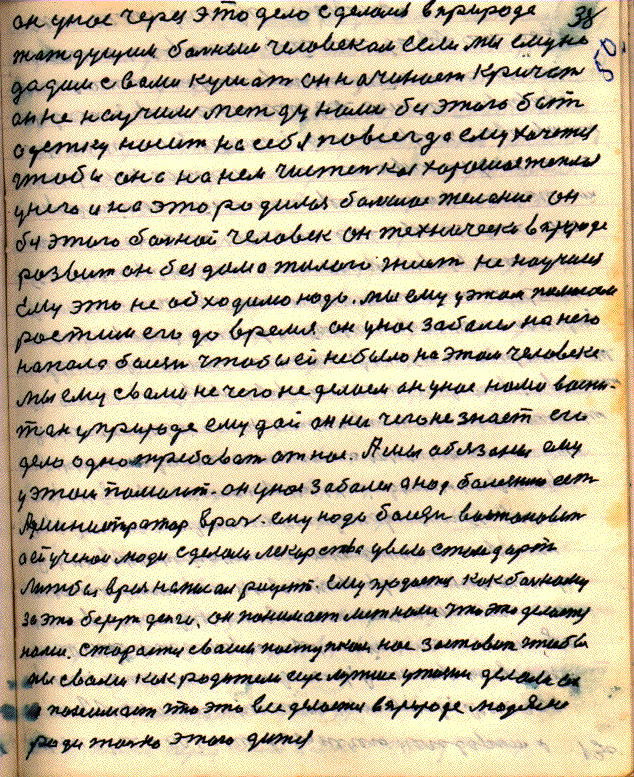 он у нас через это дело сделался в природе 38
50.
жаждущим больным человекам если мы ему не
дадим с вами кушат он начинает кричат
он не научился между нами без этого быт
одежку носит на себя повсегда ему хочется
чтобы она на нем чистенкая хорошая теплая
у него и на это родилось большое желание он
без этого больной человек он технически в природе
развит он без дома жилого жит не научился
Ему это необходимо надо. мы ему у этом помогаем
ростим его до время он у нас заболел на него
напала болезн чтобы ей не было на этом человеке
мы ему с вами не чего не делаем он у нас нами воспи-
тан у природе ему дай он ни чего не знает его
дело одно требоват от нас. А мы обязаны ему
у этом помагат. он у нас заболел а над болезнию ест
Администратор врач. ему надо болезн востановит
а ей ученои люди сделали лекарства ввели стандарт
лиж бы врач написал рицепт. Ему продается как больному
за это берут денги, он понимает между нами что это делается
нами. старается своим поступком нас заставит чтобы
мы с вами как родители еще лучше у жизни делали он
и понимает что это все делается в природе людями
ради такого этого дитя